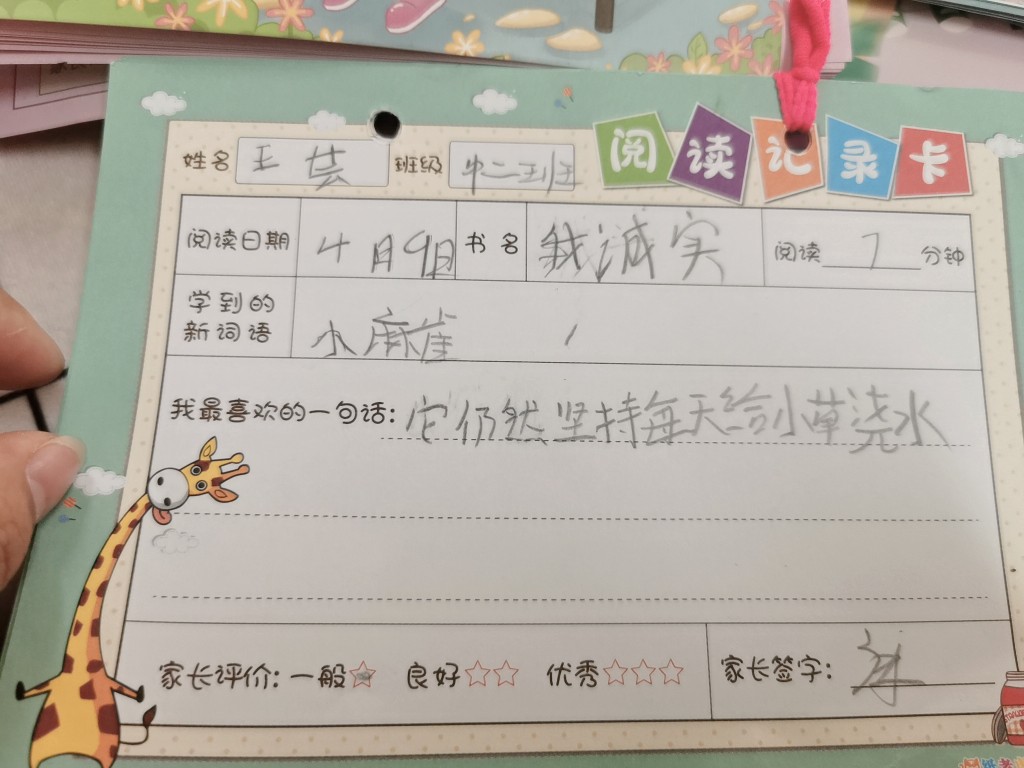 阅读记录卡
姓名 王芸 班级 中二班
阅读日期 4月9日 书名 我诚实 阅读 7 分钟
学到的新词语 小麻雀
我最喜欢的一句话: 它仍然坚持每天给小草浇水
家长评价: 一般☆ 良好☆☆ 优秀☆☆☆ 家长签字: